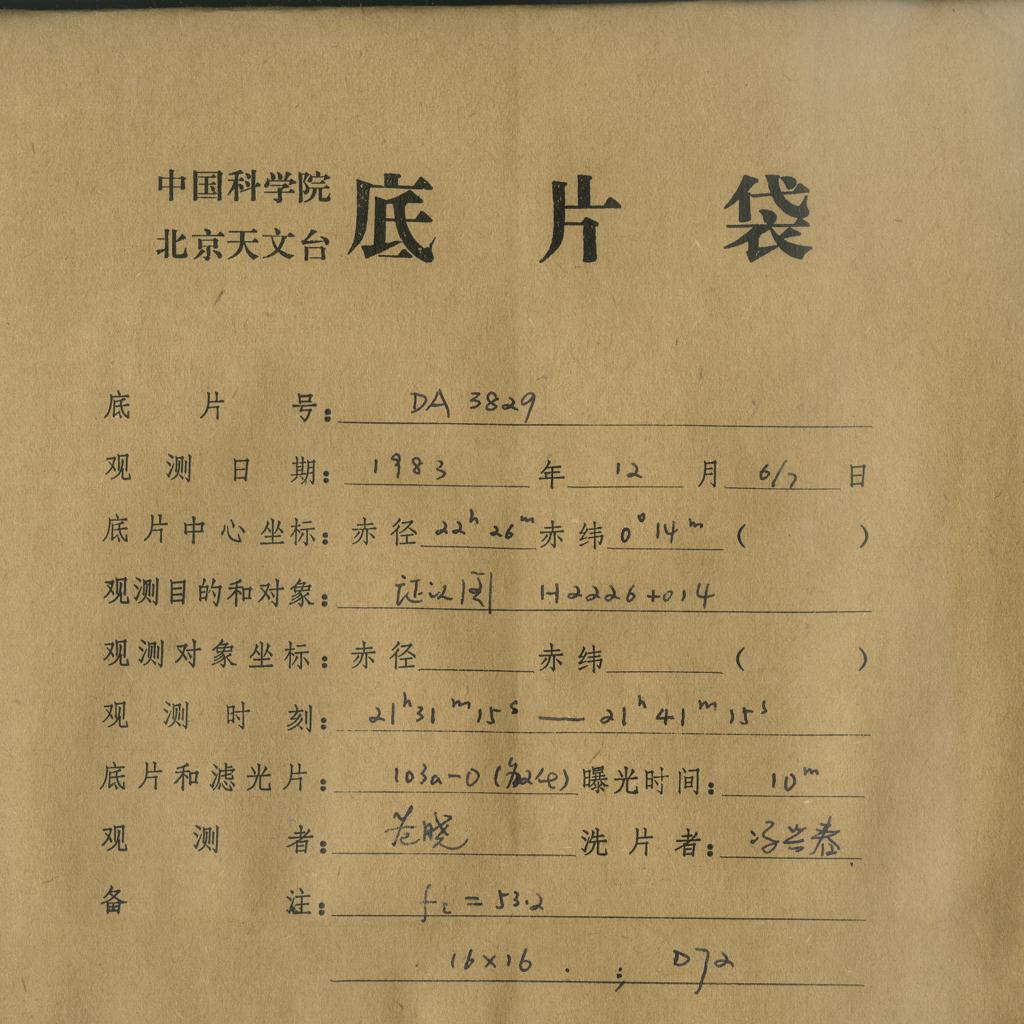 中国科学院
北京天文台
底片袋
底片号: DA 3829
观测日期: 1983 年 12 月 6/7 日
底片中心坐标: 赤径 22h 26m 赤纬 0° 14m ( )
观测目的和对象: 证认图 H2226+014
观测对象坐标: 赤径 赤纬 ( )
观测时刻: 21h31m15s — 21h41m15s
底片和滤光片: 103a-O 曝光时间: 10m
观测者: 洗片者:
备注: = 53.2
16×16 . ; D72